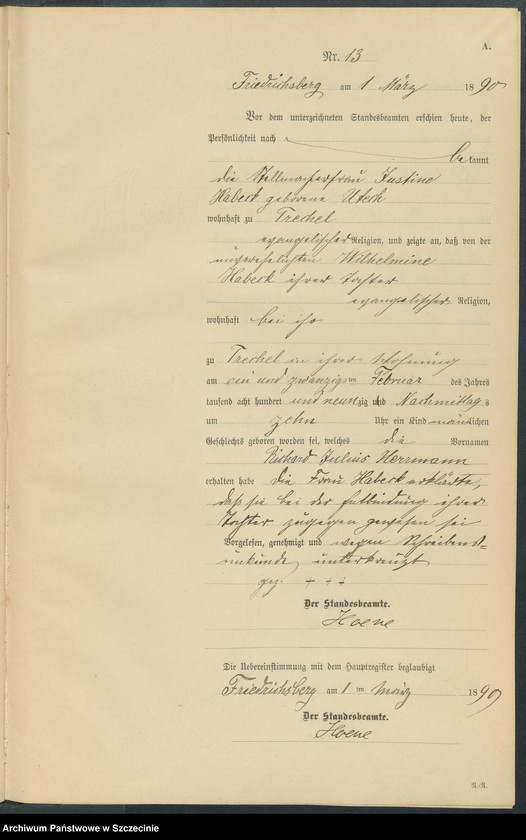 A.
Nr. 13
Friedrichsberg am 1 März 1890
Vor dem unterzeichneten Standesbeamten erschien heute, der
Persönlichkeit nach
bekannt
die Stellmacherfrau Justine
Habeck geborene Utech
wohnhaft zu Trechel
evangelischer Religion, und zeigte an, daß von der
unverehelichten Wilhelmine
Habeck ihrer Tochter
evangelischer Religion,
wohnhaft bei ihr
zu Trechel in ihrer Wohnung
am ein und zwanzigsten Februar des Jahres
tausend acht hundert und neunzig und Nachmittags
um zehn Uhr ein Kind männlichen
Geschlechts geboren worden sei, welches die Vornamen
Richard Julius Herrmann
erhalten habe Die Frau Habeck erklärte,
daß sie bei der Entbindung ihrer
Tochter zugegen gewesen sei
Vorgelesen, genehmigt und wegen Schreibens-
unkunde unterkreuzt
gez. + + +
Der Standesbeamte.
Hoene
Die Uebereinstimmung mit dem Hauptregister beglaubigt
Friedrichsberg am 1ten März 1890
Der Standesbeamte.
Hoene
Archiwum Państwowe w Szczecinie